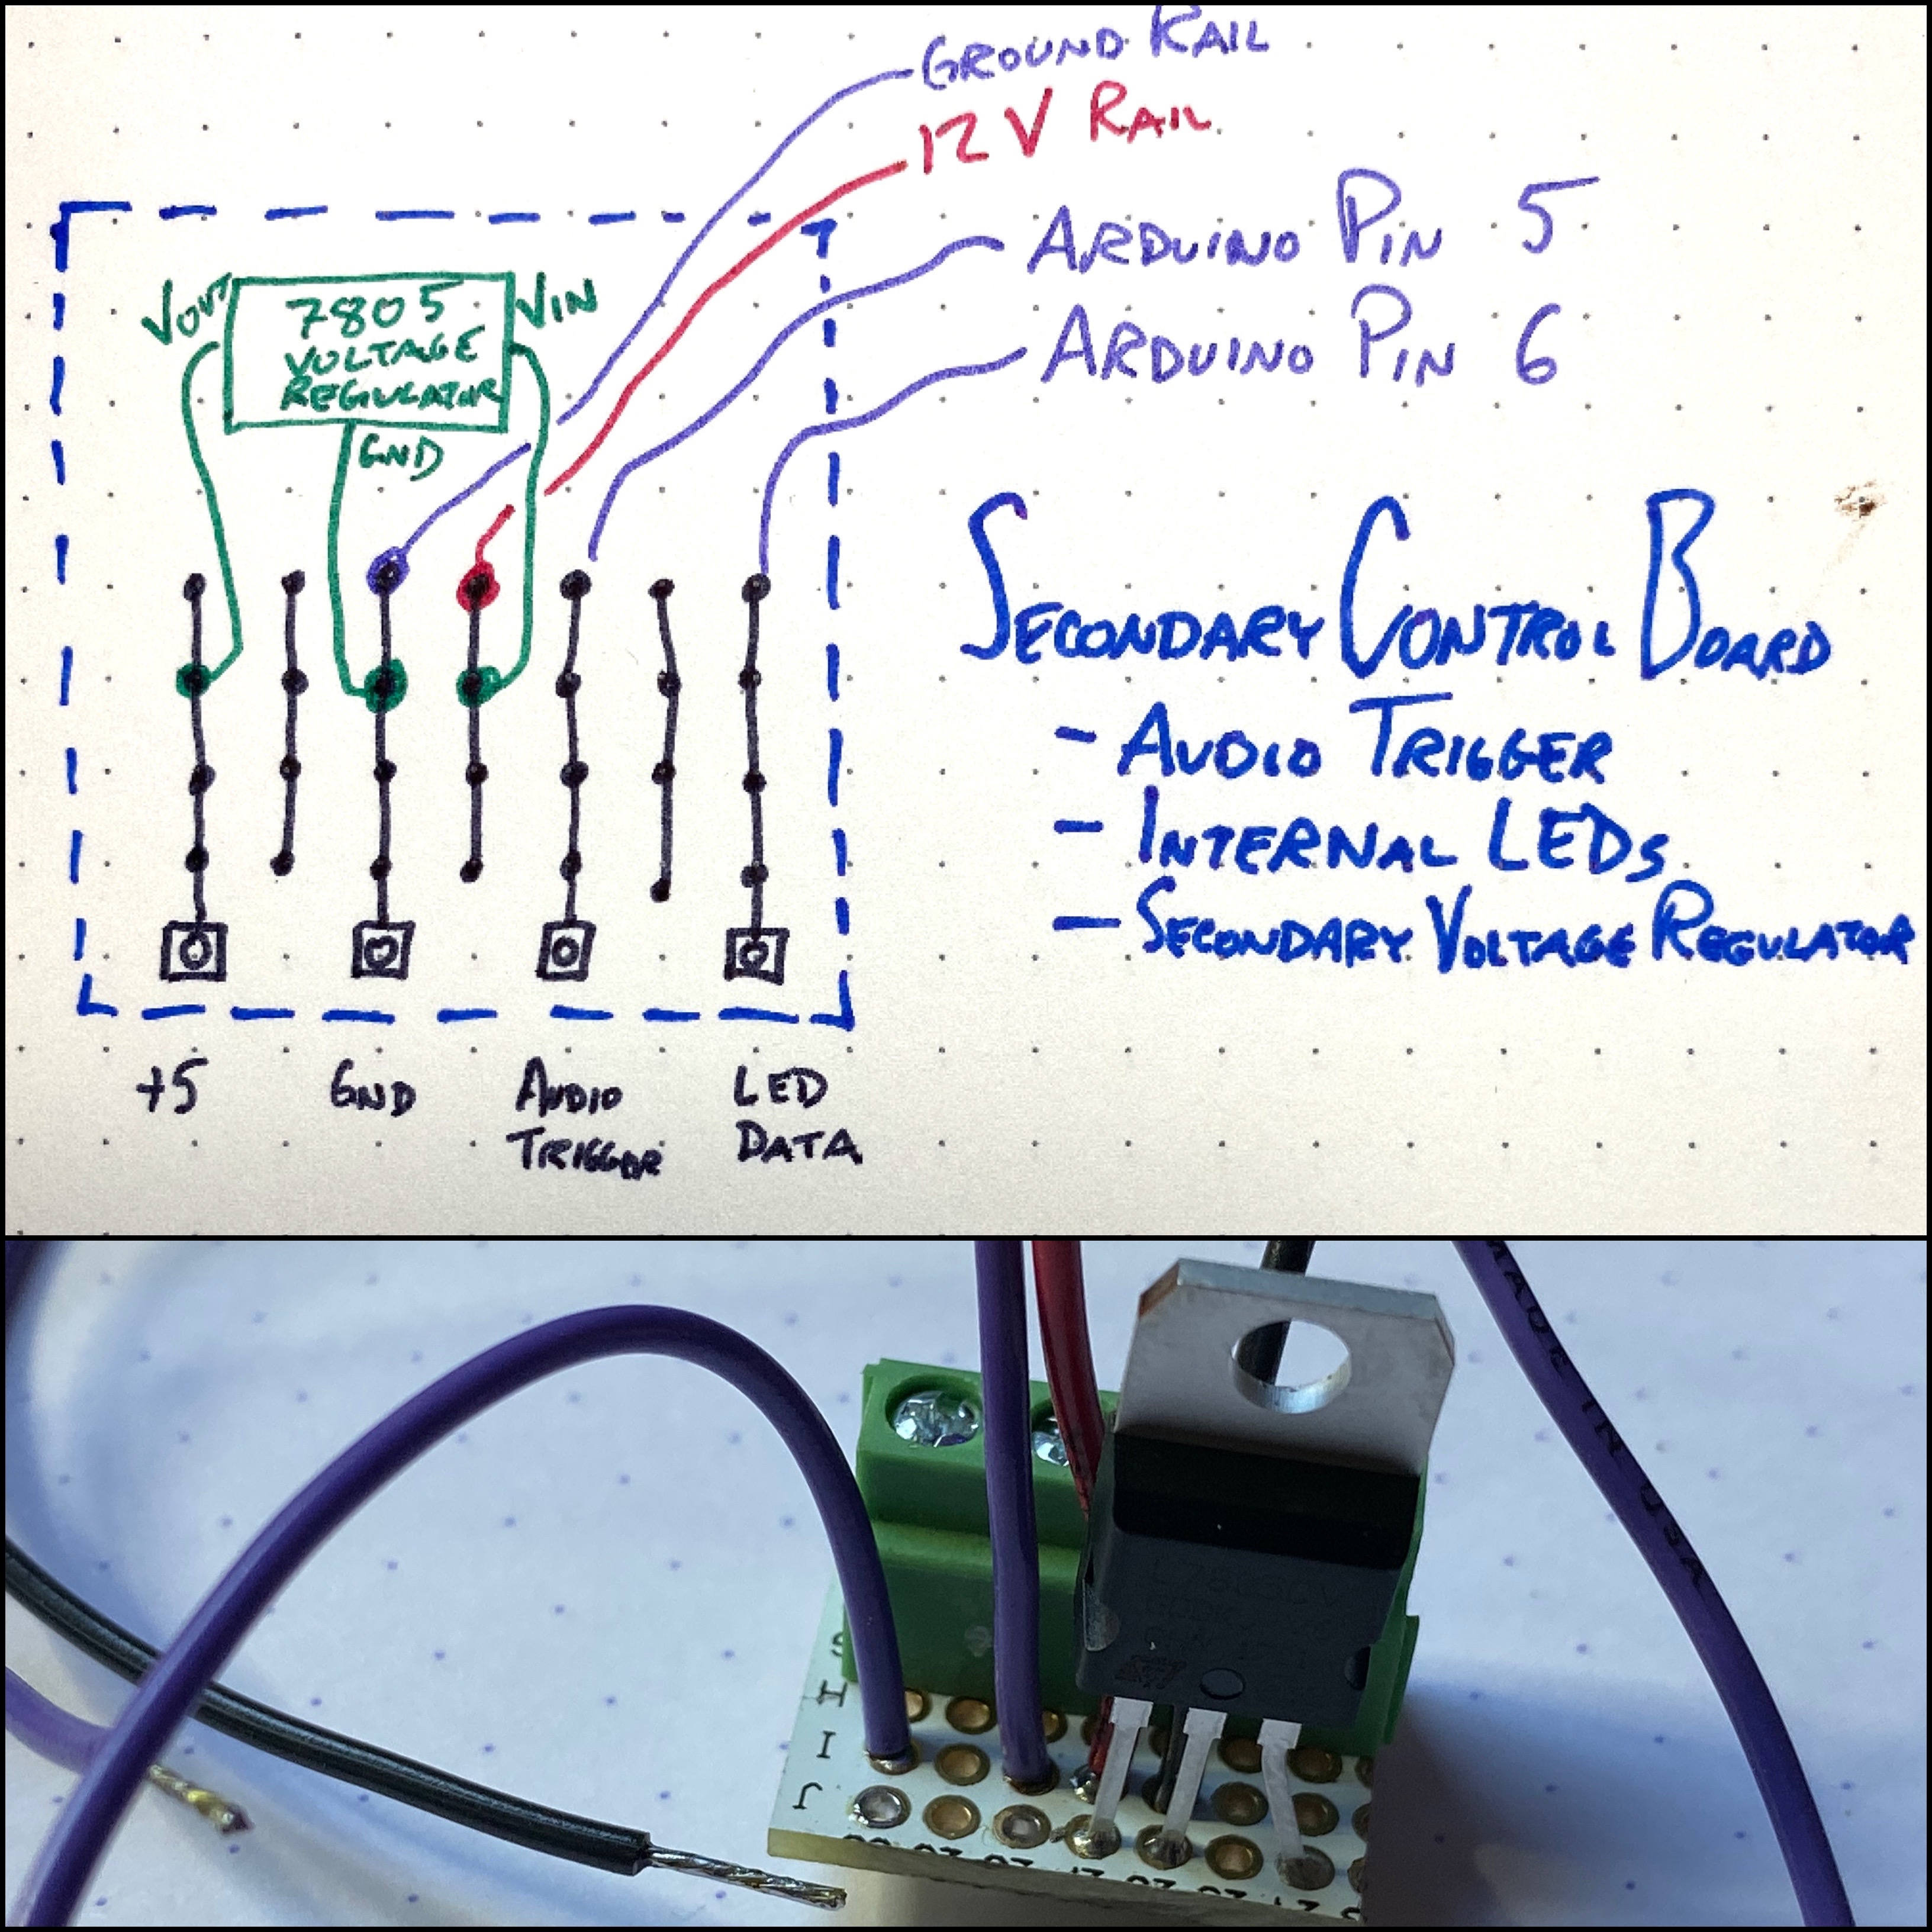 GROUND RAIL
12V RAIL
ARDUINO PIN 5
ARDUINO PIN 6
VOUT
7805
VOLTAGE
REGULATOR
VIN
GND
SECONDARY CONTROL BOARD
- AUDIO TRIGGER
- INTERNAL LEDs
- SECONDARY VOLTAGE REGULATOR
+5
GND
AUDIO
TRIGGER
LED
DATA
MADE IN USA
H
I
J